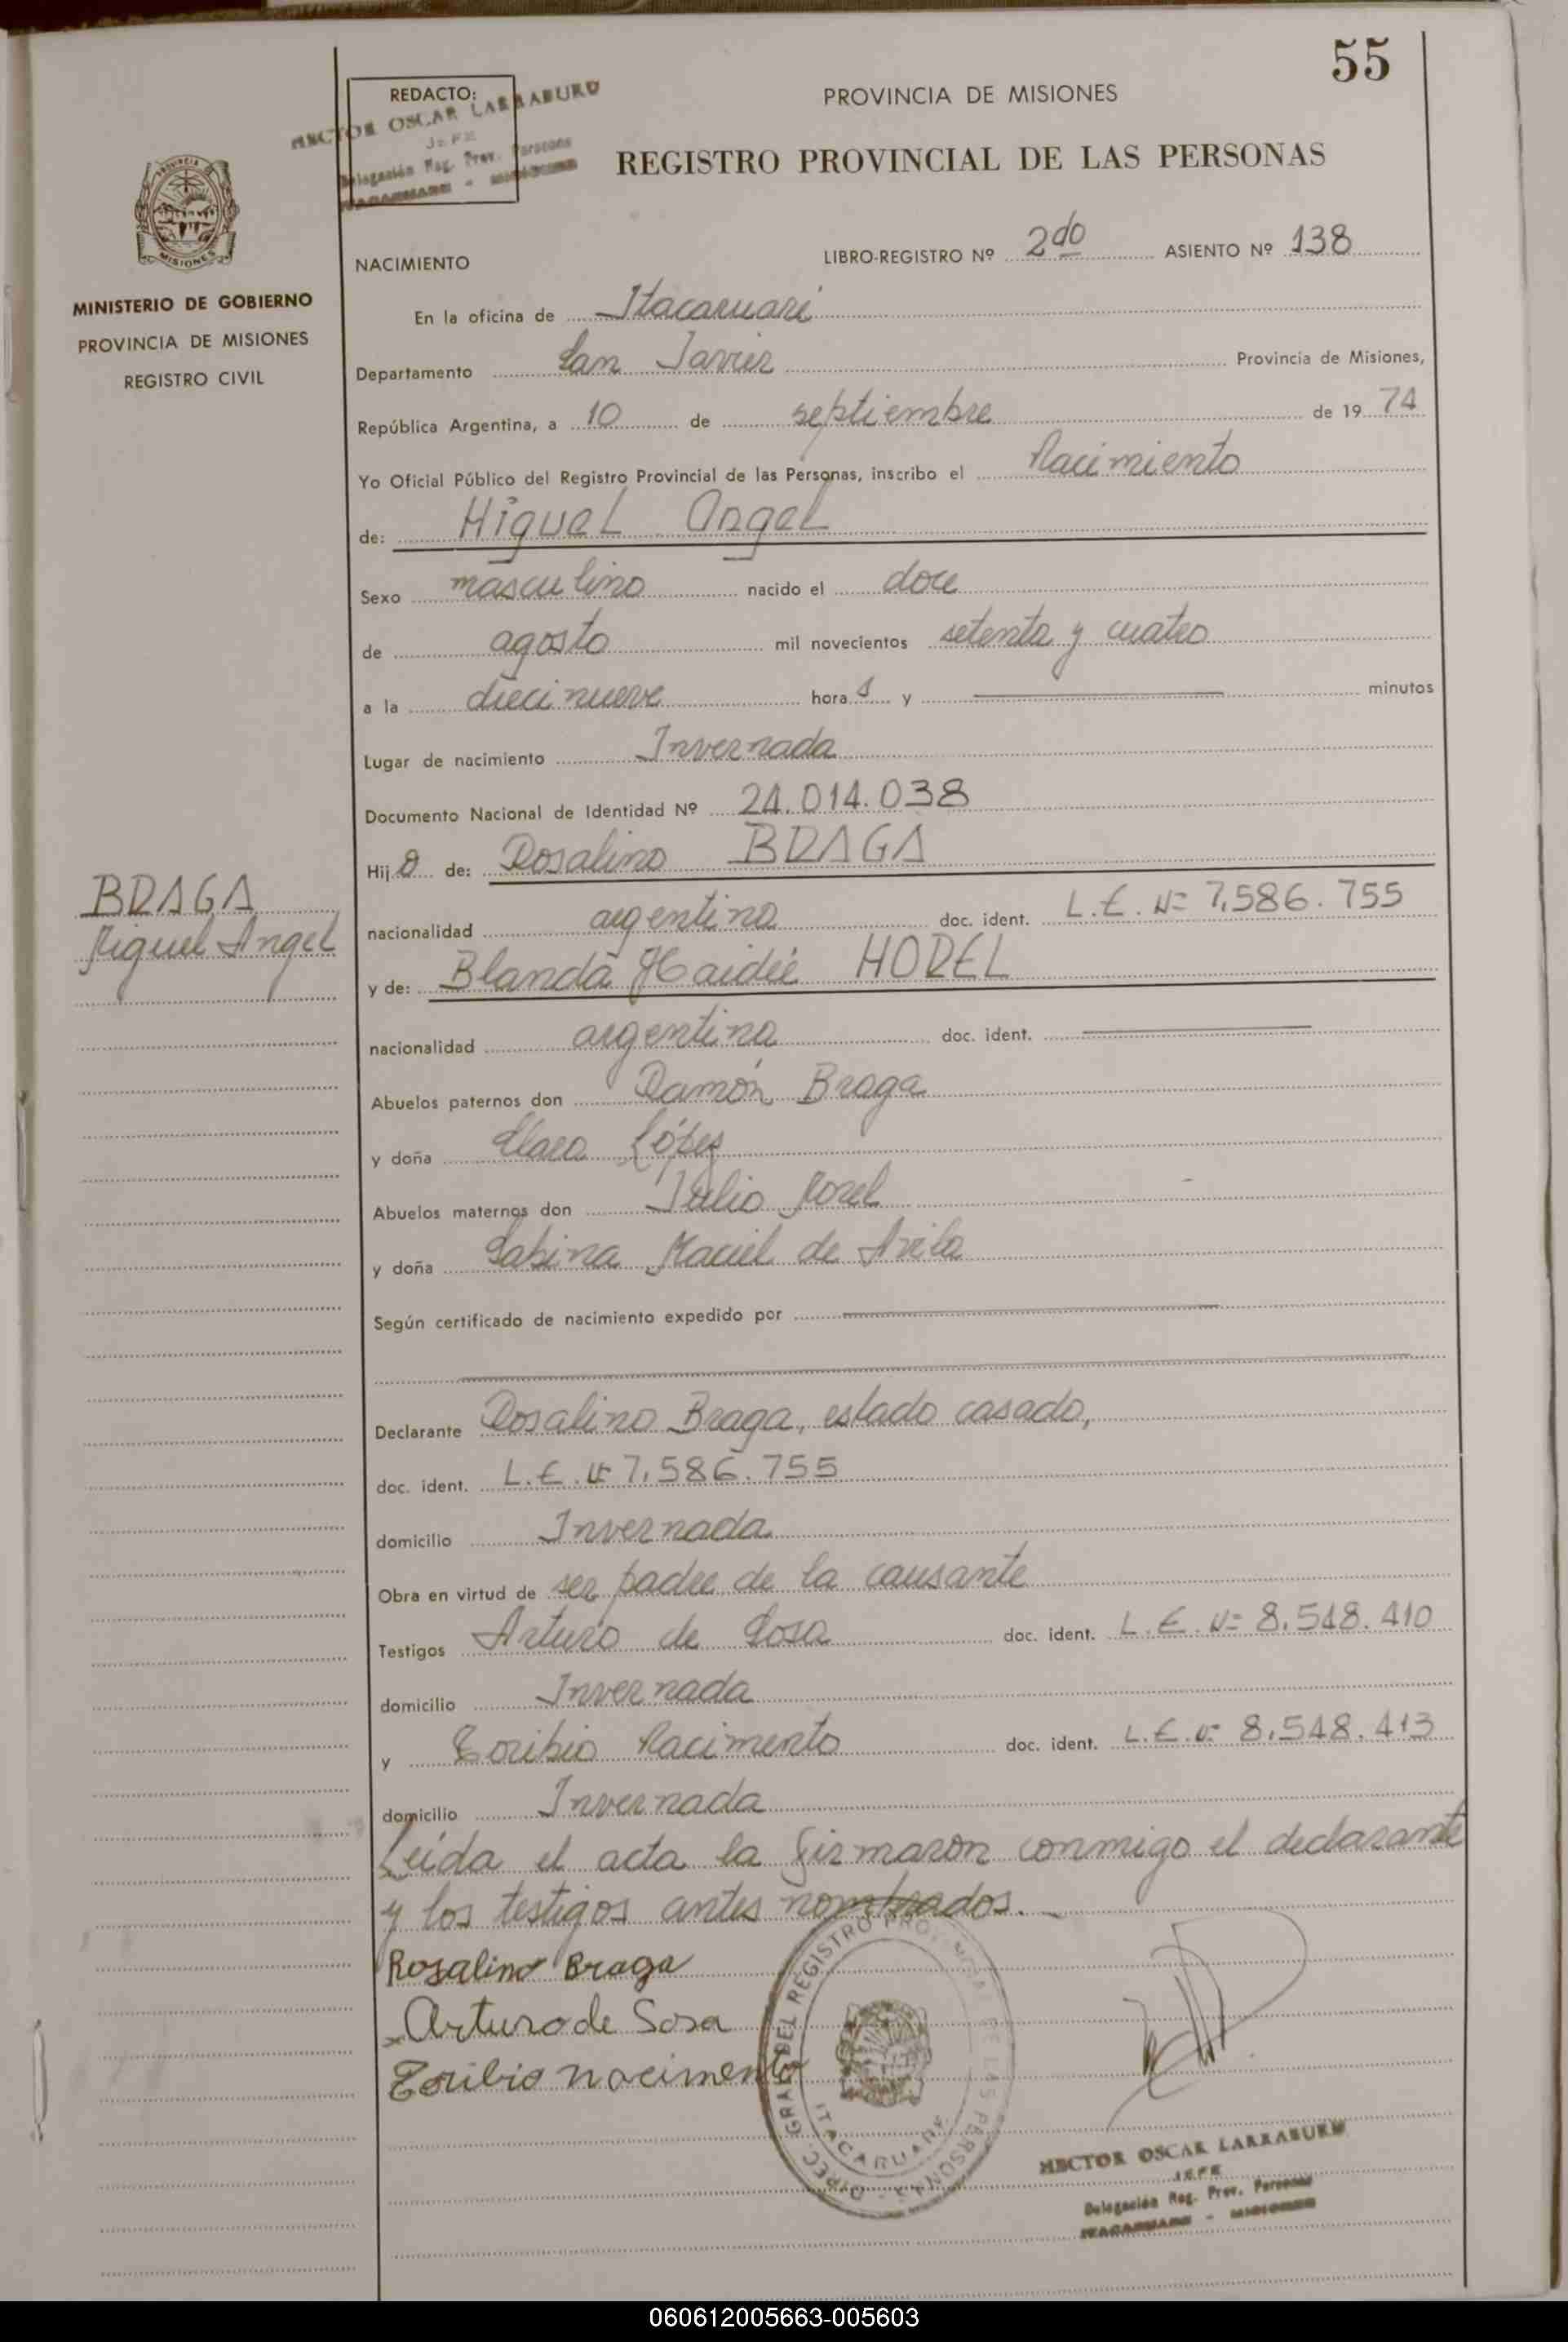 55
REDACTO:
HECTOR OSCAR LARRABURU
JEFE
Delegación Reg. Prov. Personas
ITACARUARE - MISIONES
PROVINCIA DE MISIONES
REGISTRO PROVINCIAL DE LAS PERSONAS
PROVINCIA
MISIONES
MINISTERIO DE GOBIERNO
PROVINCIA DE MISIONES
REGISTRO CIVIL
NACIMIENTO LIBRO-REGISTRO Nº 2do ASIENTO Nº 138
En la oficina de Itacaruaré
Departamento San Javier Provincia de Misiones,
República Argentina, a 10 de septiembre de 1974
Yo Oficial Público del Registro Provincial de las Personas, inscribo el Nacimiento
de: Miguel Angel
Sexo masculino nacido el doce
de agosto mil novecientos setenta y cuatro
a la diecinueve hora s y minutos
Lugar de nacimiento Invernada
Documento Nacional de Identidad Nº 24.014.038
Hijo de: Rosalino BRAGA
BRAGA
Miguel Angel
nacionalidad argentina doc. ident. L.E. Nº 7.586.755
y de: Blanda Haidée MOREL
nacionalidad argentina doc. ident.
Abuelos paternos don Ramón Braga
y doña Clara López
Abuelos maternos don Julio Morel
y doña Sabina Maciel de Avila
Según certificado de nacimiento expedido por
Declarante Rosalino Braga, estado casado,
doc. ident. L.E. Nº 7.586.755
domicilio Invernada
Obra en virtud de ser padre de la causante
Testigos Arturo de Sosa doc. ident. L.E. Nº 8.548.410
domicilio Invernada
y Toribio Nacimento doc. ident. L.E. Nº 8.548.413
domicilio Invernada
Leída el acta la firmaron conmigo el declarante
y los testigos antes nombrados.
Rosalino Braga
Arturo de Sosa
Toribio nacimento
DIREC. GRAL. DEL REGISTRO PROVINCIAL DE LAS PERSONAS
ITACARUARE
HECTOR OSCAR LARRABURU
JEFE
Delegación Reg. Prov. Personas
ITACARUARE - MISIONES
060612005663-005603